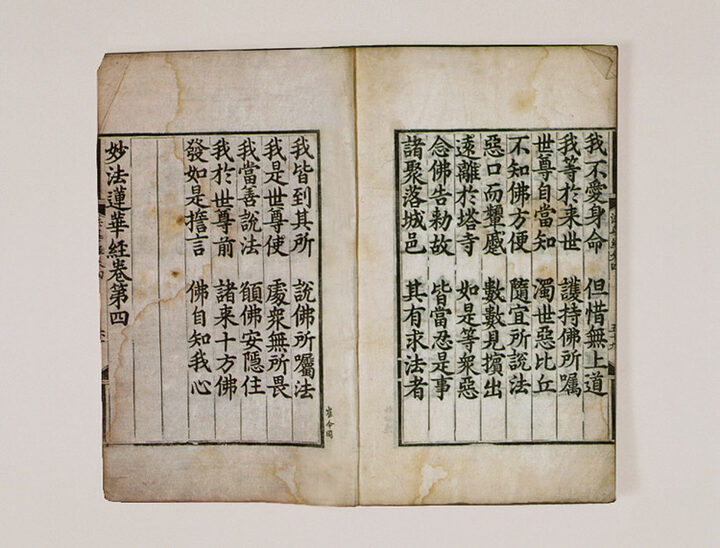 我不愛身命 但惜無上道
我等於来世 護持佛所囑
世尊自當知 濁世惡比丘
不知佛方便 隨宜所說法
惡口而顰蹙 數數見擯出
遠離於塔寺 如是等衆惡
念佛告勅故 皆當忍是事
諸聚落城邑 其有求法者
我皆到其所 說佛所囑法
我是世尊使 處衆無所畏
我當善說法 願佛安隱住
我於世尊前 諸来十方佛
發如是誓言 佛自知我心
妙法蓮華經卷第四